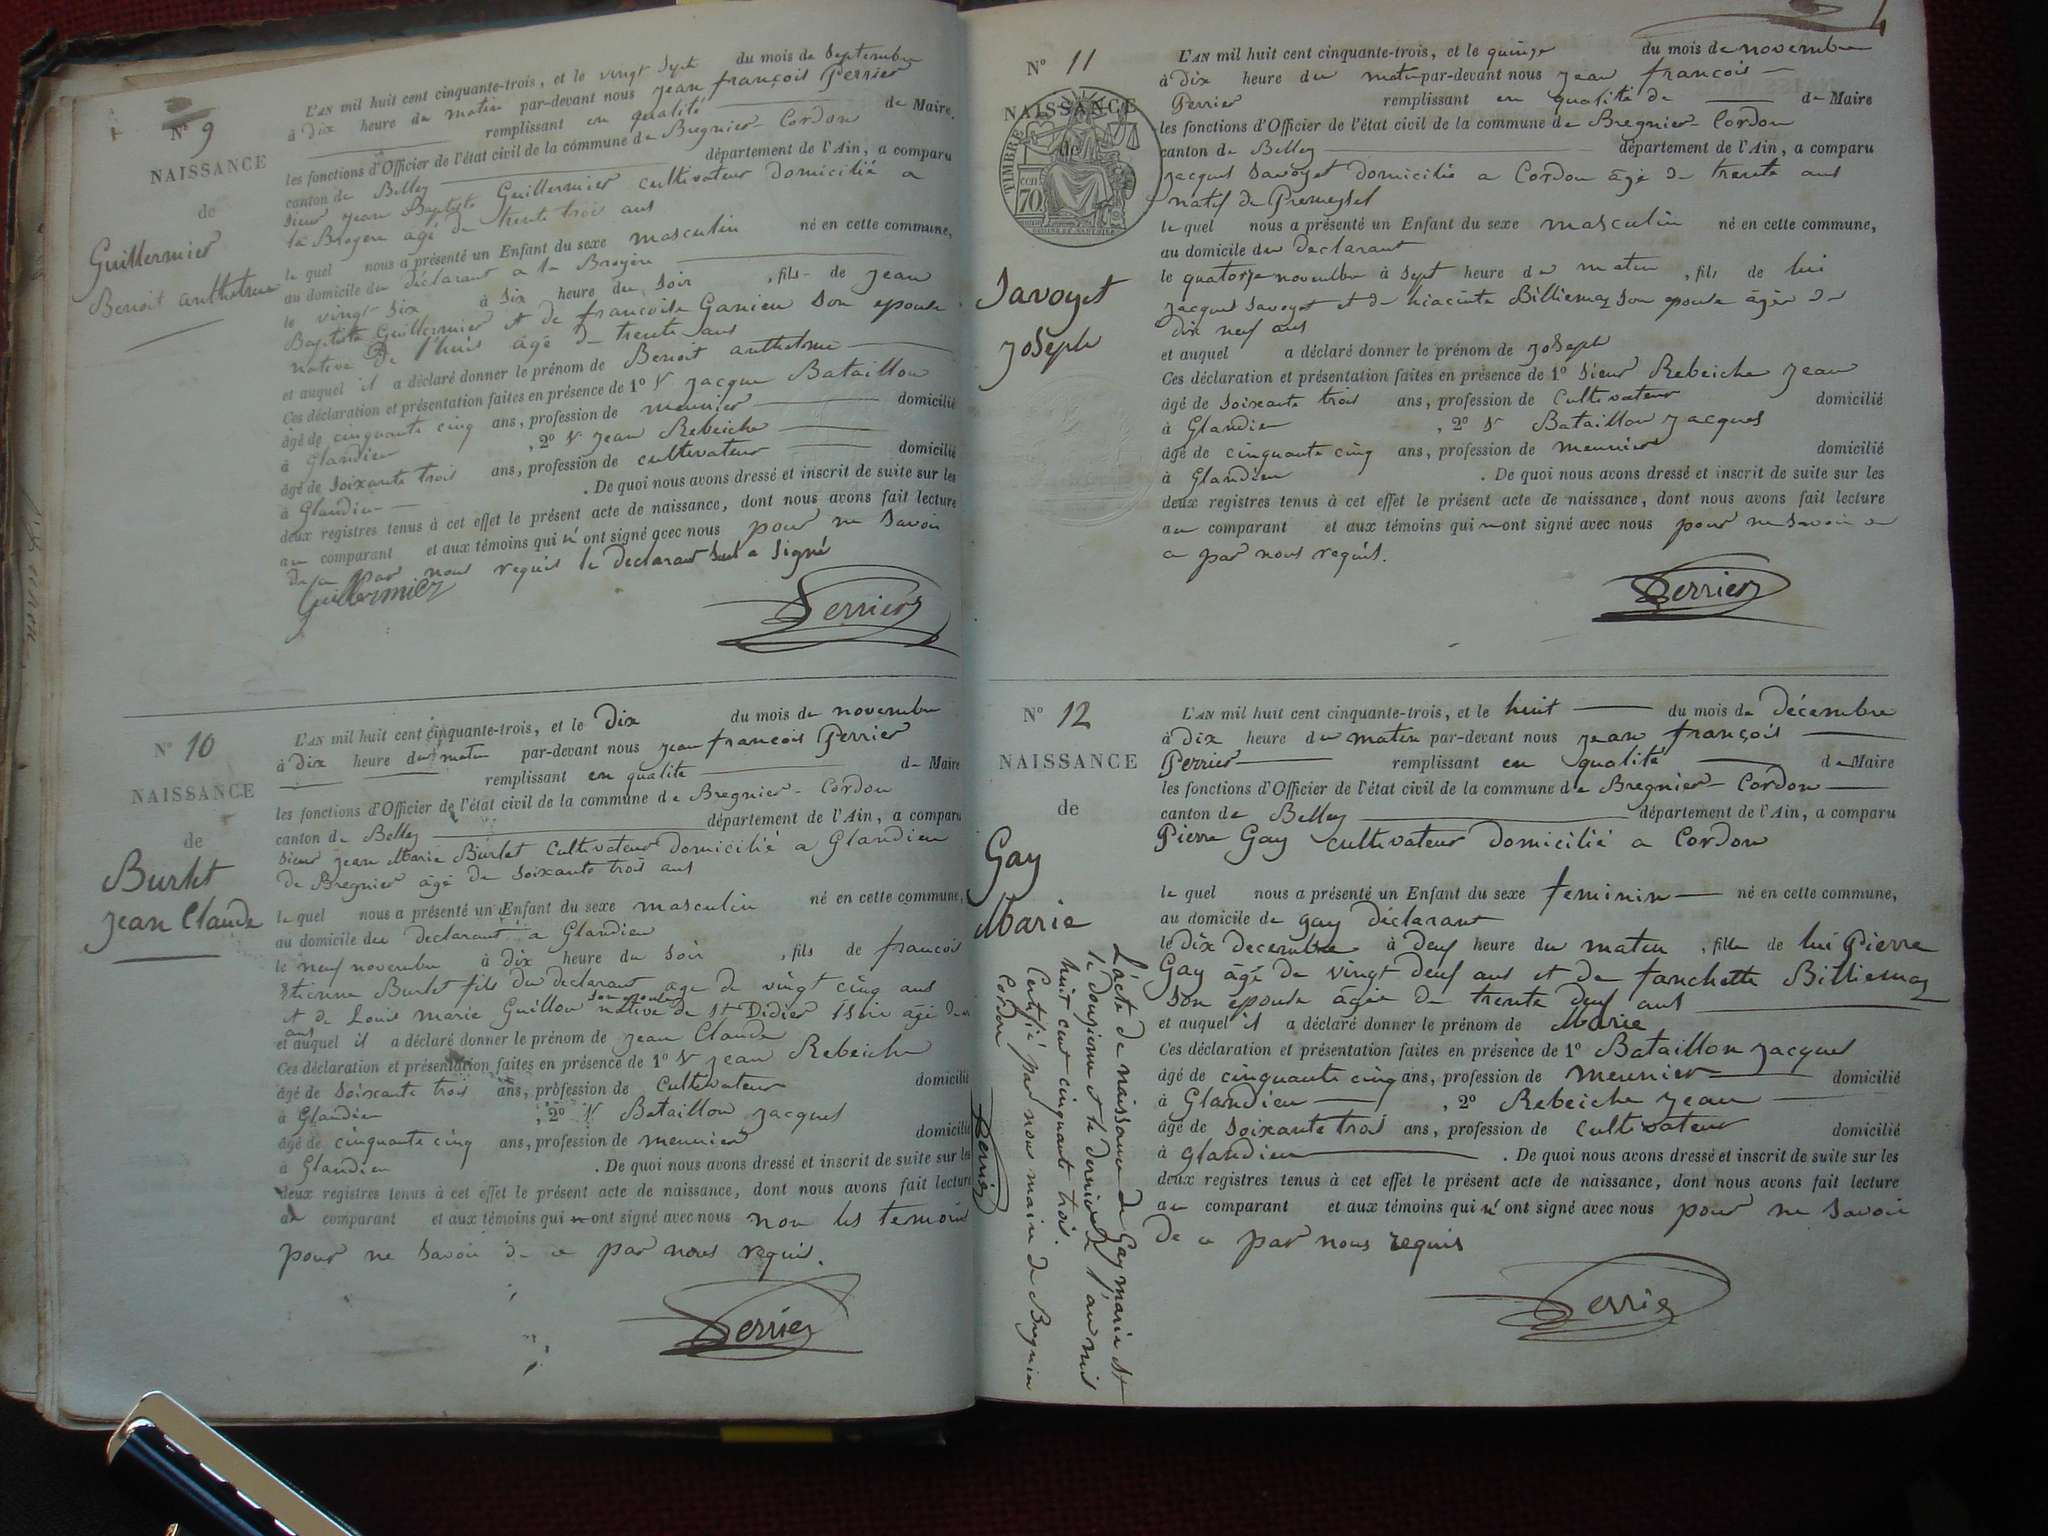 Nº 9
NAISSANCE
de
Guillermier
Benoit anthelme
L'AN mil huit cent cinquante-trois, et le vingt sept du mois de Septembre
à dix heure du matin par-devant nous jean françois Perrier
remplissant en qualité de Maire
les fonctions d'Officier de l'état civil de la commune de Bregnier-Cordon
canton de Belley département de l'Ain, a comparu
Sieur jean Baptiste Guillermier cultivateur domicilié a
la Broyere agé de trente trois ans
le quel nous a présenté un Enfant du sexe masculin né en cette commune,
au domicile du déclarant a la Broyère
le vingt six à six heure du soir, fils de jean
Baptiste Guillermier et de françoise Ganieu son epouse
native de l'huis âgé de trente ans
et auquel il a déclaré donner le prénom de Benoit anthelme
Ces déclaration et présentation faites en présence de 1º Sr jacque Bataillon
âgé de cinquante cinq ans, profession de meunier domicilié
à Glandieu, 2º Sr jean Rebeiche
âgé de soixante trois ans, profession de cultivateur domicilié
à Glandieu. De quoi nous avons dressé et inscrit de suite sur les
deux registres tenus à cet effet le présent acte de naissance, dont nous avons fait lecture
au comparant et aux témoins qui n' ont signé avec nous pour ne savoir
de ce par nous requis le declarant seul a signé
Guillermier
Perrier
Nº 10
NAISSANCE
de
Burlet
jean Claude
L'AN mil huit cent cinquante-trois, et le dix du mois de novembre
à dix heure du matin par-devant nous jean françois Perrier
remplissant en qualité de Maire
les fonctions d'Officier de l'état civil de la commune de Bregnier-Cordon
canton de Belley département de l'Ain, a comparu
Sieur jean Marie Burlet cultivateur domicilié a Glandieu
de Bregnier âgé de soixante trois ans
le quel nous a présenté un Enfant du sexe masculin né en cette commune,
au domicile du declarant a Glandieu
le neuf novembre à dix heure du soir, fils de francois
Etienne Burlet fils du declarant age de vingt cinq ans
et de Louis marie Guillou son epouse native de St Didier Isère âgé de
ans
et auquel il a déclaré donner le prénom de jean Claude
Ces déclaration et présentation faites en présence de 1º Sr jean Rebeiche
âgé de soixante trois ans, profession de cultivateur domicilié
à Glandieu, 2º Sr Bataillon jacques
âgé de cinquante cinq ans, profession de meunier domicilié
à Glandieu. De quoi nous avons dressé et inscrit de suite sur les
deux registres tenus à cet effet le présent acte de naissance, dont nous avons fait lecture
au comparant et aux témoins qui ont signé avec nous non les temoins
pour ne savoir de ce par nous requis.
Perrier
Nº 11
NAISSANCE
de
TIMBRE
70
Savoyet
joseph
L'AN mil huit cent cinquante-trois, et le quinze du mois de novembre
à dix heure du matin par-devant nous jean françois
Perrier remplissant en qualité de de Maire
les fonctions d'Officier de l'état civil de la commune de Bregnier-Cordon
canton de Belley département de l'Ain, a comparu
jacques Savoyet domicilié a Cordon âgé de trente ans
natif de Premeyzel
le quel nous a présenté un Enfant du sexe masculin né en cette commune,
au domicile du declarant
le quatorze novembre à sept heure du matin, fils de lui
jacques Savoyet et de hiacinte Billiemaz son epouse âgée de
dix neuf ans
et auquel a déclaré donner le prénom de joseph
Ces déclaration et présentation faites en présence de 1º Sieur Rebeiche jean
âgé de soixante trois ans, profession de Cultivateur domicilié
à Glandieu, 2º Sr Bataillon jacques
âgé de cinquante cinq ans, profession de meunier domicilié
à Glandieu. De quoi nous avons dressé et inscrit de suite sur les
deux registres tenus à cet effet le présent acte de naissance, dont nous avons fait lecture
au comparant et aux témoins qui n ont signé avec nous pour ne savoir de
ce par nous requis.
Perrier
Nº 12
NAISSANCE
de
Gay
Marie
L'AN mil huit cent cinquante-trois, et le huit du mois de décembre
à dix heure du matin par-devant nous jean françois
Perrier remplissant en qualité de Maire
les fonctions d'Officier de l'état civil de la commune de Bregnier-Cordon
canton de Belley département de l'Ain, a comparu
Pierre Gay cultivateur domicilié a Cordon
le quel nous a présenté un Enfant du sexe feminin né en cette commune,
au domicile de gay déclarant
le dix decembre à deux heure du matin, fille de lui Pierre
Gay âgé de vingt deux ans et de fanchette Billiemaz
son épouse âgée de trente deux ans
et auquel il a déclaré donner le prénom de Marie
Ces déclaration et présentation faites en présence de 1º Bataillon jacques
âgé de cinquante cinq ans, profession de meunier domicilié
à Glandieu, 2º Rebeiche jean
âgé de soixante trois ans, profession de cultivateur domicilié
à Glandieu. De quoi nous avons dressé et inscrit de suite sur les
deux registres tenus à cet effet le présent acte de naissance, dont nous avons fait lecture
au comparant et aux témoins qui n' ont signé avec nous pour ne savoir
de ce par nous requis
Perrier
L'acte de naissance de Gay marie est
le douzieme et le dernier de l'an mil
huit cent cinquante trois.
Certifié par nous maire de Bregnier
Cordon
Perrier